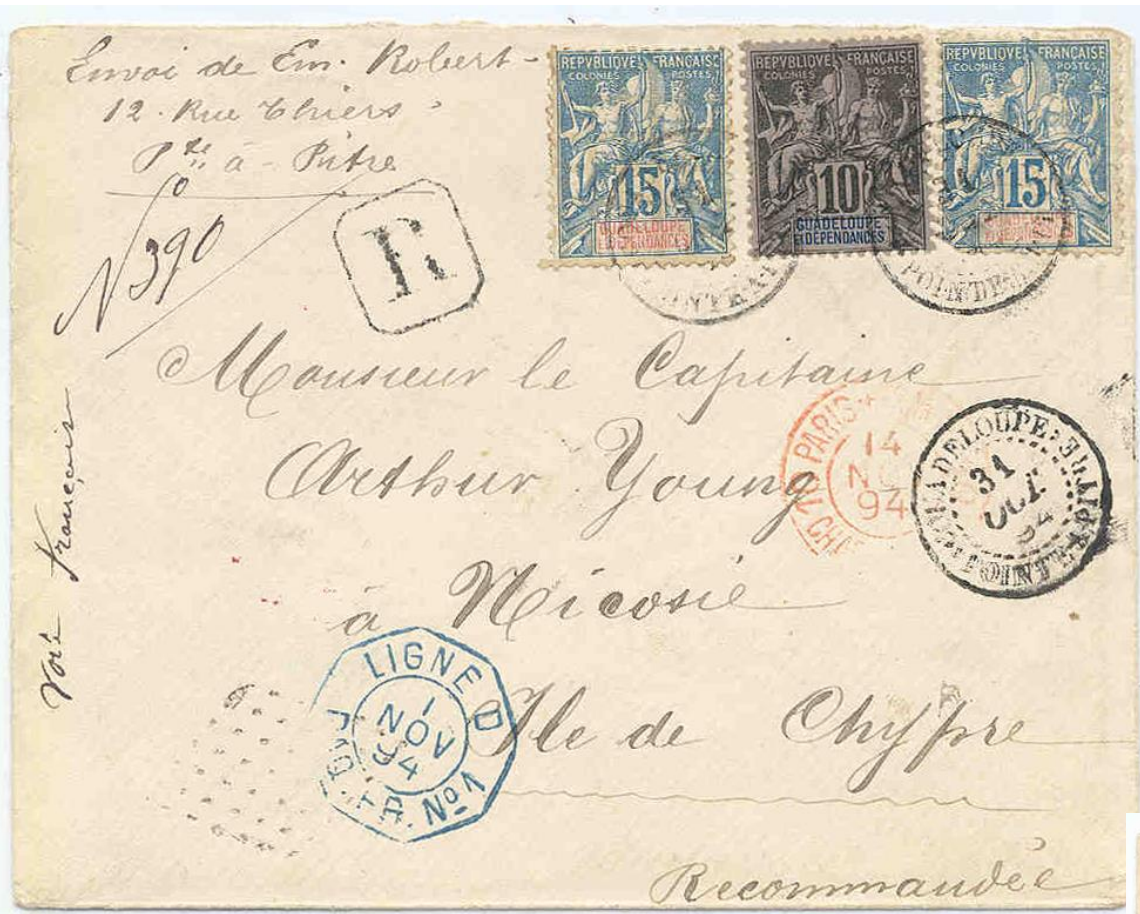 Envoi de Em. Robert -
12. Rue Thiers
Pte à - Pitre
No 390
R
REPVBLIQVE FRANÇAISE
COLONIES POSTES
15
GUADELOUPE
ET DÉPENDANCES
REPVBLIQVE FRANÇAISE
COLONIES POSTES
10
GUADELOUPE
ET DÉPENDANCES
REPVBLIQVE FRANÇAISE
COLONIES POSTES
15
Monsieur le Capitaine
Arthur Young
à Nicosie
Ile de Chypre
Recommandée
Voie Français
PARIS
14
94
GUADELOUPE
31
OCT
94
POINTE A PITRE
LIGNE D
1
NOV
94
PAQ. FR. No 1